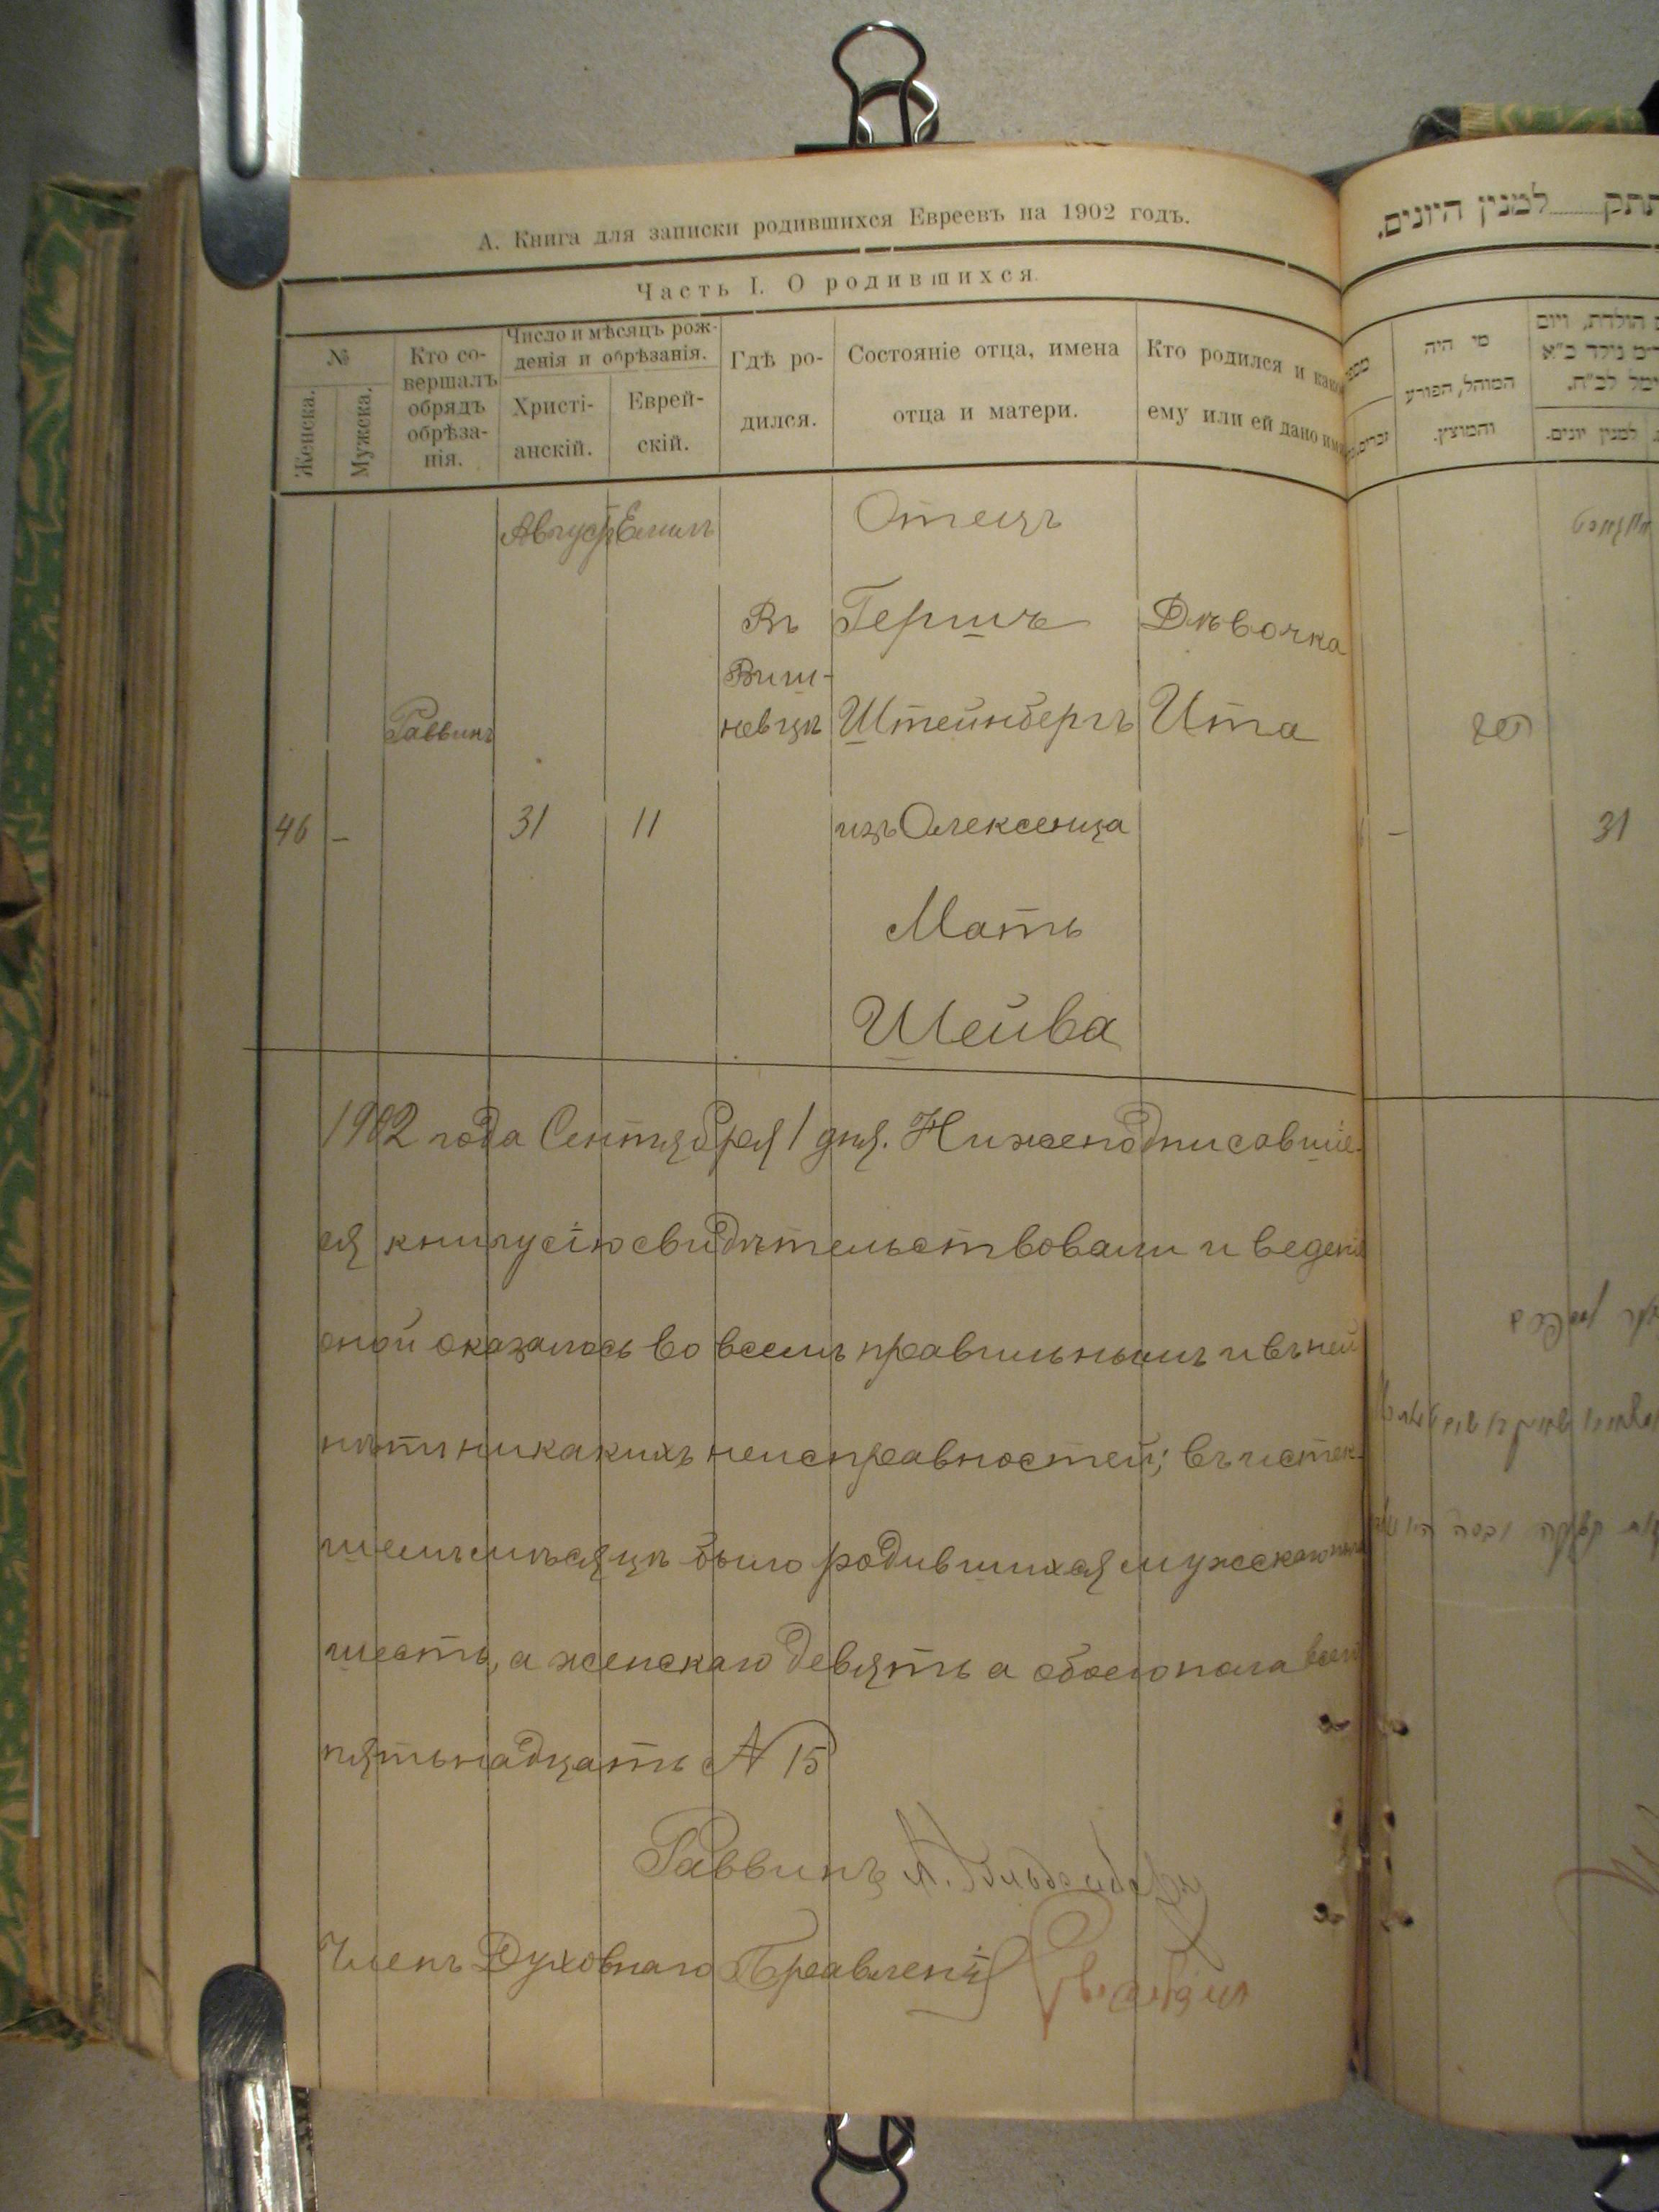 А. Книга для записки родившихся Евреевъ на 1902 годъ.
Часть I. О родившихся.
№
Женска.
Мужска.
Кто со-
вершалъ
обрядъ
обрѣза-
нія.
Число и мѣсяцъ рож-
денія и обрѣзанія.
Христі-
анскій.
Еврей-
скій.
Гдѣ ро-
дился.
Состояніе отца, имена
отца и матери.
Кто родился и какое
ему или ей дано имя
Августъ Елилъ Отецъ
Въ Гершъ Дѣвочка
Виш-
Раввинъ невцѣ Штейнбергъ Ита
46 – 31 11 изъ Олексенца
Мать
Шейва
1902 года Сентября 1 дня. Нижеподписавшіе-
ся книгу сію свидѣтельствовали и веденіе
оной оказалось во всемъ правильнымъ и въ ней
нѣтъ никакихъ неисправностей; въ истек-
шемъ мѣсяцѣ было родившихся мужскаго пола
шесть, а женскаго девять а обоего пола всего
пятьнадцать № 15
Раввинъ
Членъ Духовнаго Правленія
למנין היונים.
מי היה
המוהל, הפורע
והמוצץ.
הולדת, ויום
למנין יונים.
– 31